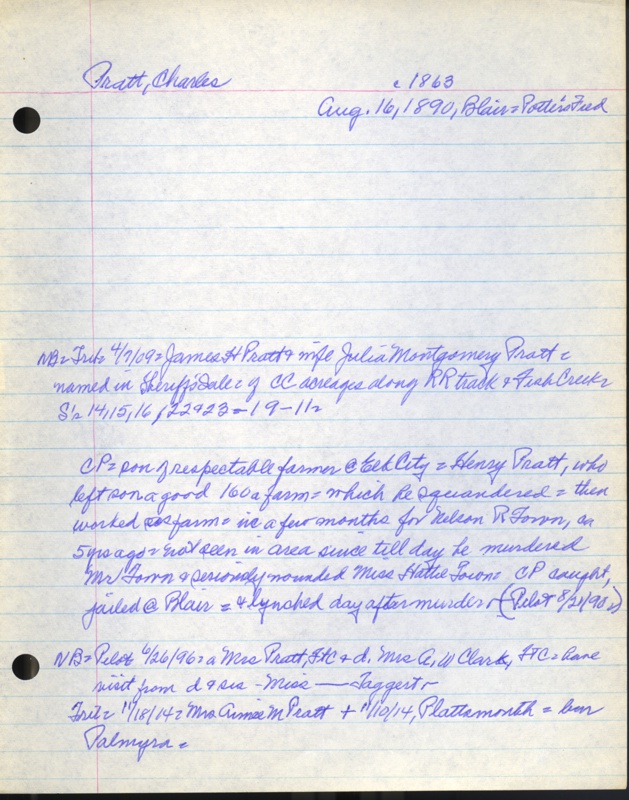 Pratt, Charles c 1863
Aug. 16, 1890, Blair = Potter's Field
NB = Trib = 4/9/09 = James H Pratt & wife Julia Montgomery Pratt =
named in Sheriff's Sale = of CC acreages along RR track & Fish Creek =
S's 14, 15, 16, 22 & 23 - 19 - 11 =
CP = son of respectable farmer @ Elk City = Henry Pratt, who
left son a good 160 a farm = which he squandered = then
worked farm = in a few months for Nelson R Town,
5 yrs ago = not seen in area since till day he murdered
Mr Town & seriously wounded Miss Hattie Town = CP caught,
jailed @ Blair = & lynched day after murder. (Pilot 8/21/90)
NB = Pilot 6/26/96 = a Mrs Pratt, FtC & d. Mrs A. W Clark, FtC = have
visit from d & sis - Miss — Taggert
Trib = 11/18/14 = Mrs. Aimee M Pratt + 11/10/14, Plattsmouth = bur
Palmyra =